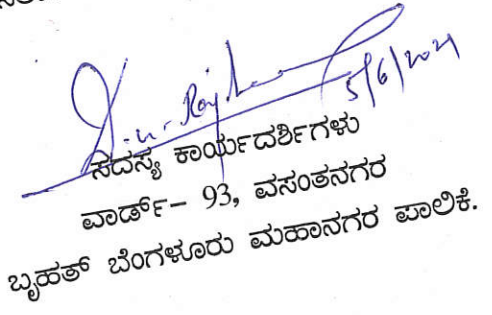 5/6/2021
ಸದಸ್ಯ ಕಾರ್ಯದರ್ಶಿಗಳು
ವಾರ್ಡ್- 93, ವಸಂತನಗರ
ಬೃಹತ್ ಬೆಂಗಳೂರು ಮಹಾನಗರ ಪಾಲಿಕೆ.